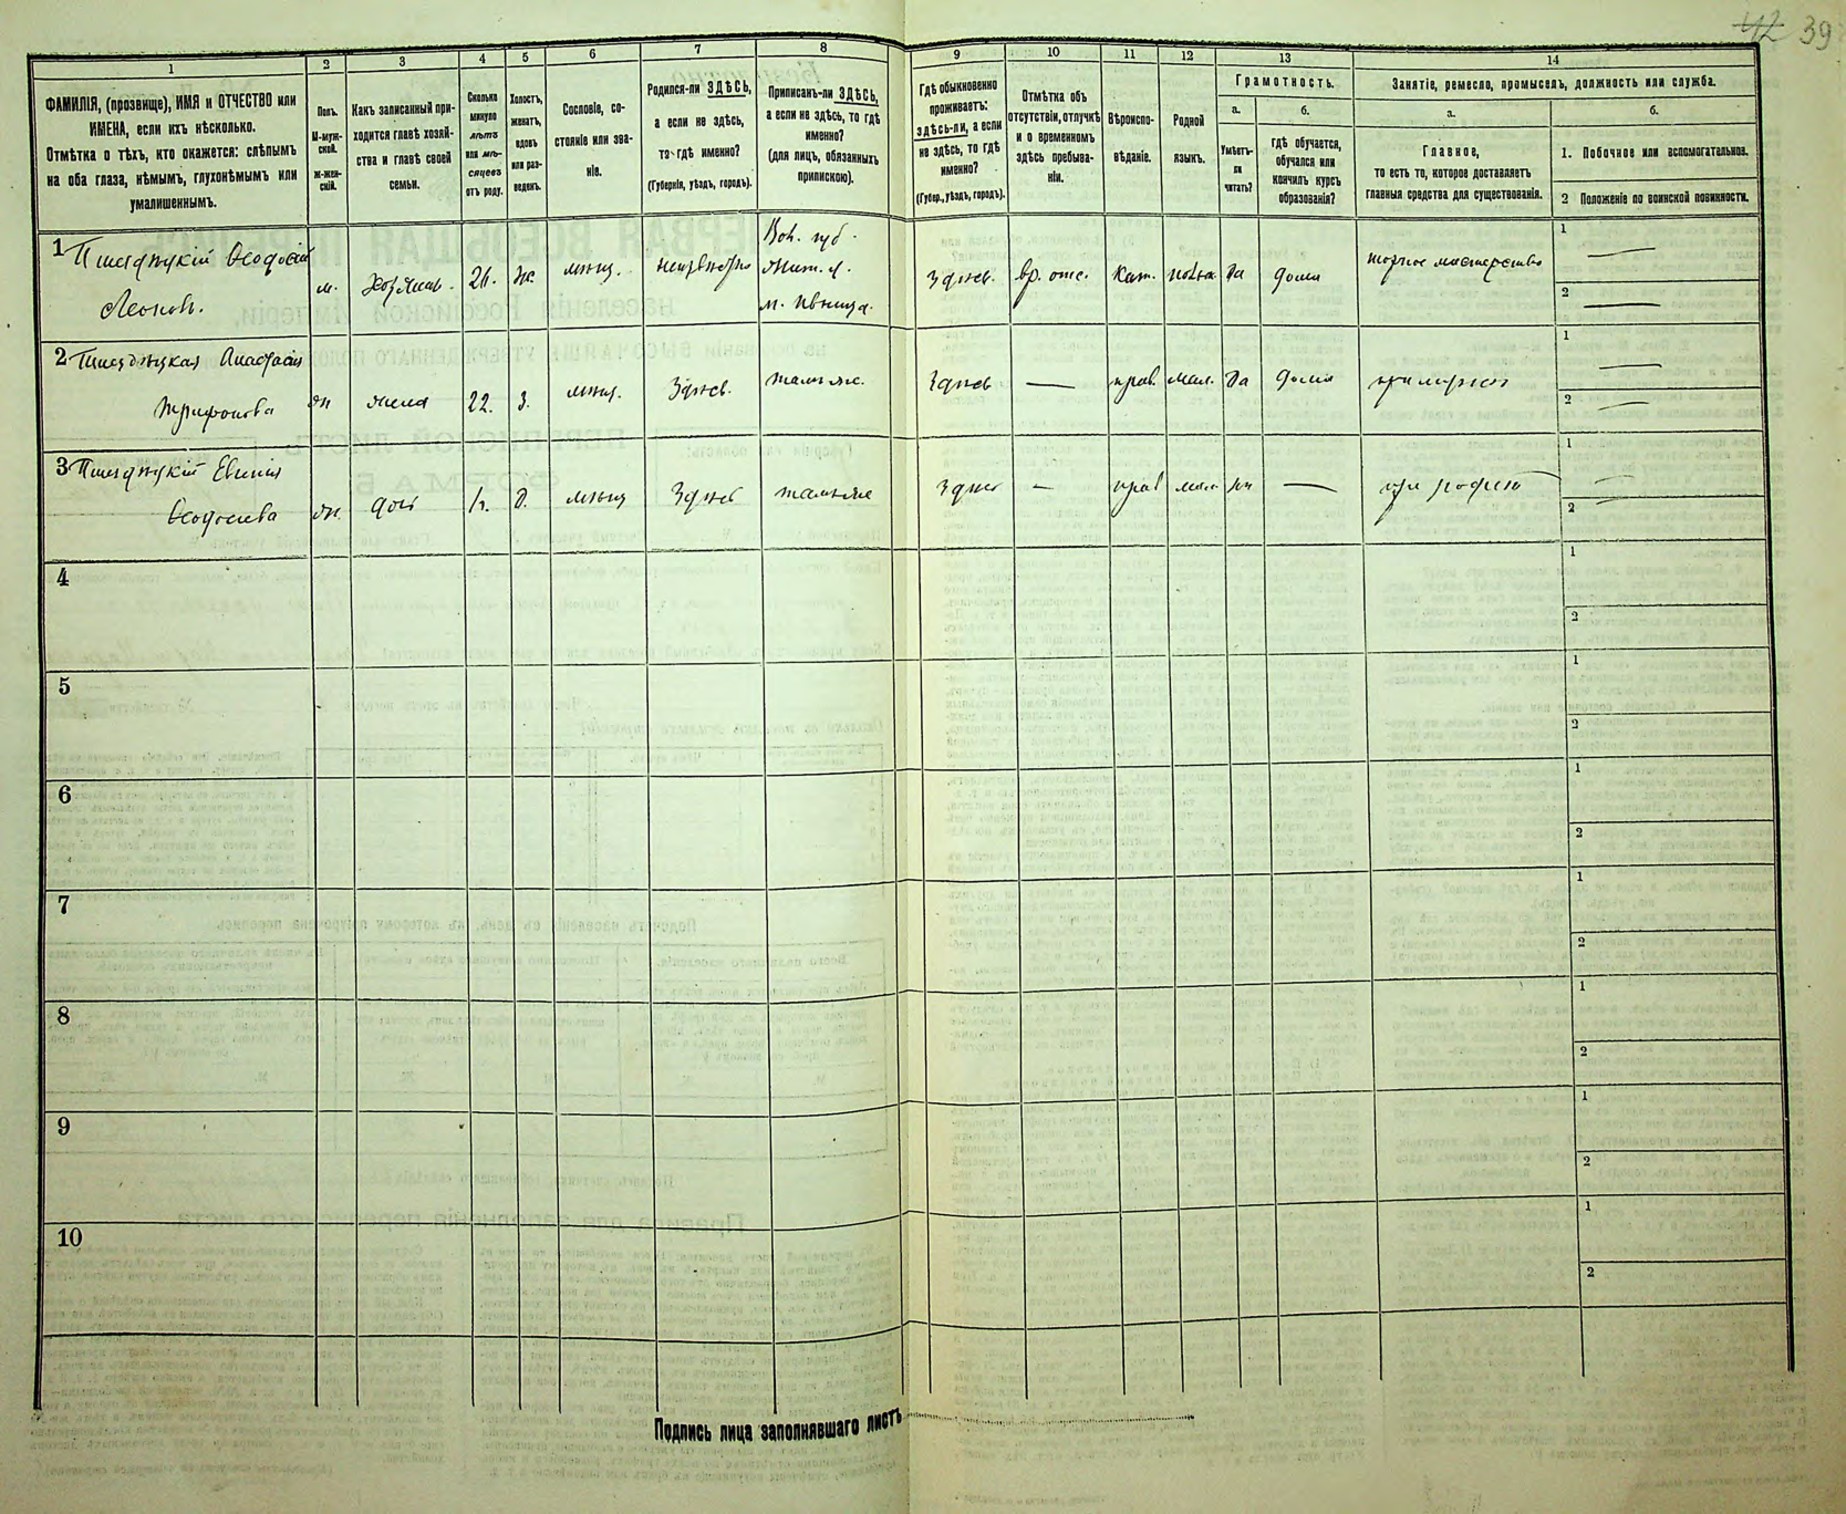 42 39
1
2
3
4
5
6
7
8
9
10
11
12
13
14
ФАМИЛІЯ, (прозвище), ИМЯ и ОТЧЕСТВО или
ИМЕНА, если ихъ нѣсколько.
Отмѣтка о тѣхъ, кто окажется: слѣпымъ
на оба глаза, нѣмымъ, глухонѣмымъ или
умалишеннымъ.
Полъ.
М-муж-
ской.
Ж-жен-
скій.
Какъ записанный при-
ходится главѣ хозяй-
ства и главѣ своей
семьи.
Сколько
минуло
лѣтъ
или мѣ-
сяцевъ
отъ роду.
Холостъ,
женатъ,
вдовъ
или раз-
веденъ.
Сословіе, со-
стояніе или зва-
ніе.
Родился-ли ЗДѢСЬ,
а если не здѣсь,
то гдѣ именно?
(Губернія, уѣздъ, городъ).
Приписанъ-ли ЗДѢСЬ,
а если не здѣсь, то гдѣ
именно?
(для лицъ, обязанныхъ
припискою).
Гдѣ обыкновенно
проживаетъ:
здѣсь-ли, а если
не здѣсь, то гдѣ
именно?
(Губер., уѣздъ, городъ).
Отмѣтка объ
отсутствіи, отлучкѣ
и о временномъ
здѣсь пребыва-
ніи.
Вѣроиспо-
вѣданіе.
Родной
языкъ.
Грамотность.
а.
Умѣетъ-
ли
читать?
б.
гдѣ обучается,
обучался или
кончилъ курсъ
образованія?
Занятіе, ремесло, промыселъ, должность или служба.
а.
Главное,
то есть то, которое доставляетъ
главныя средства для существованія.
б.
1. Побочное или вспомогательное.
2 Положеніе по воинской повинности.
1
Ѳеодосій
Леонов.
м. хозяин. 26. ж. мѣщ.
Вол. губ.
Жит. у.
м. Ивница.
Здѣсь. вр. отс. Кат. да дома
1
2
2
Анастасія
Трифонова
ж жена 22. з. мѣщ. Здѣсь. там же.
Здѣсь — прав. мал. да дома при мужѣ
1
2
3
Ѳеодосіева
ж. дочь 1г. д. мѣщ Здѣсь там же
Здѣсь — прав мал нѣ —
1
2
4
1
2
5
1
2
6
1
2
7
1
2
8
1
2
9
1
2
10
1
2
Подпись лица заполнявшаго листъ